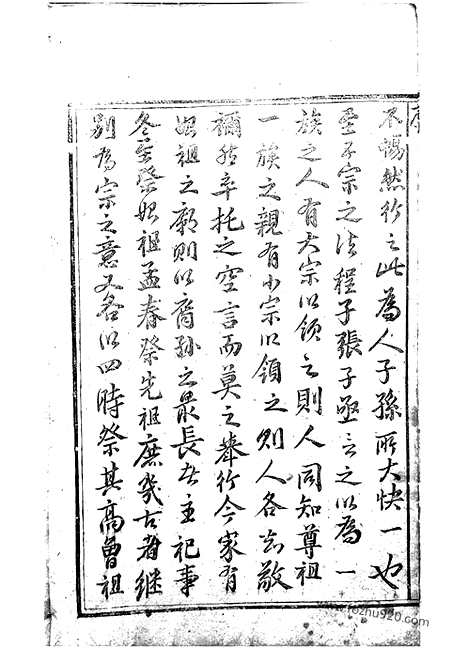 不惕然行之此為人子孫所大快一也
至於宗之法程子張子亟言之以為一
族之人有大宗以領之則人同知尊祖
一族之親有小宗以領之則人各知敬
禰然卒托之空言而莫之舉行今家有
始祖之廟則以裔孫之最長者主祀事
冬至祭始祖孟春祭先祖庶幾古者継
別為宗之意又各以四時祭其高曾祖
www.fozhu920.com